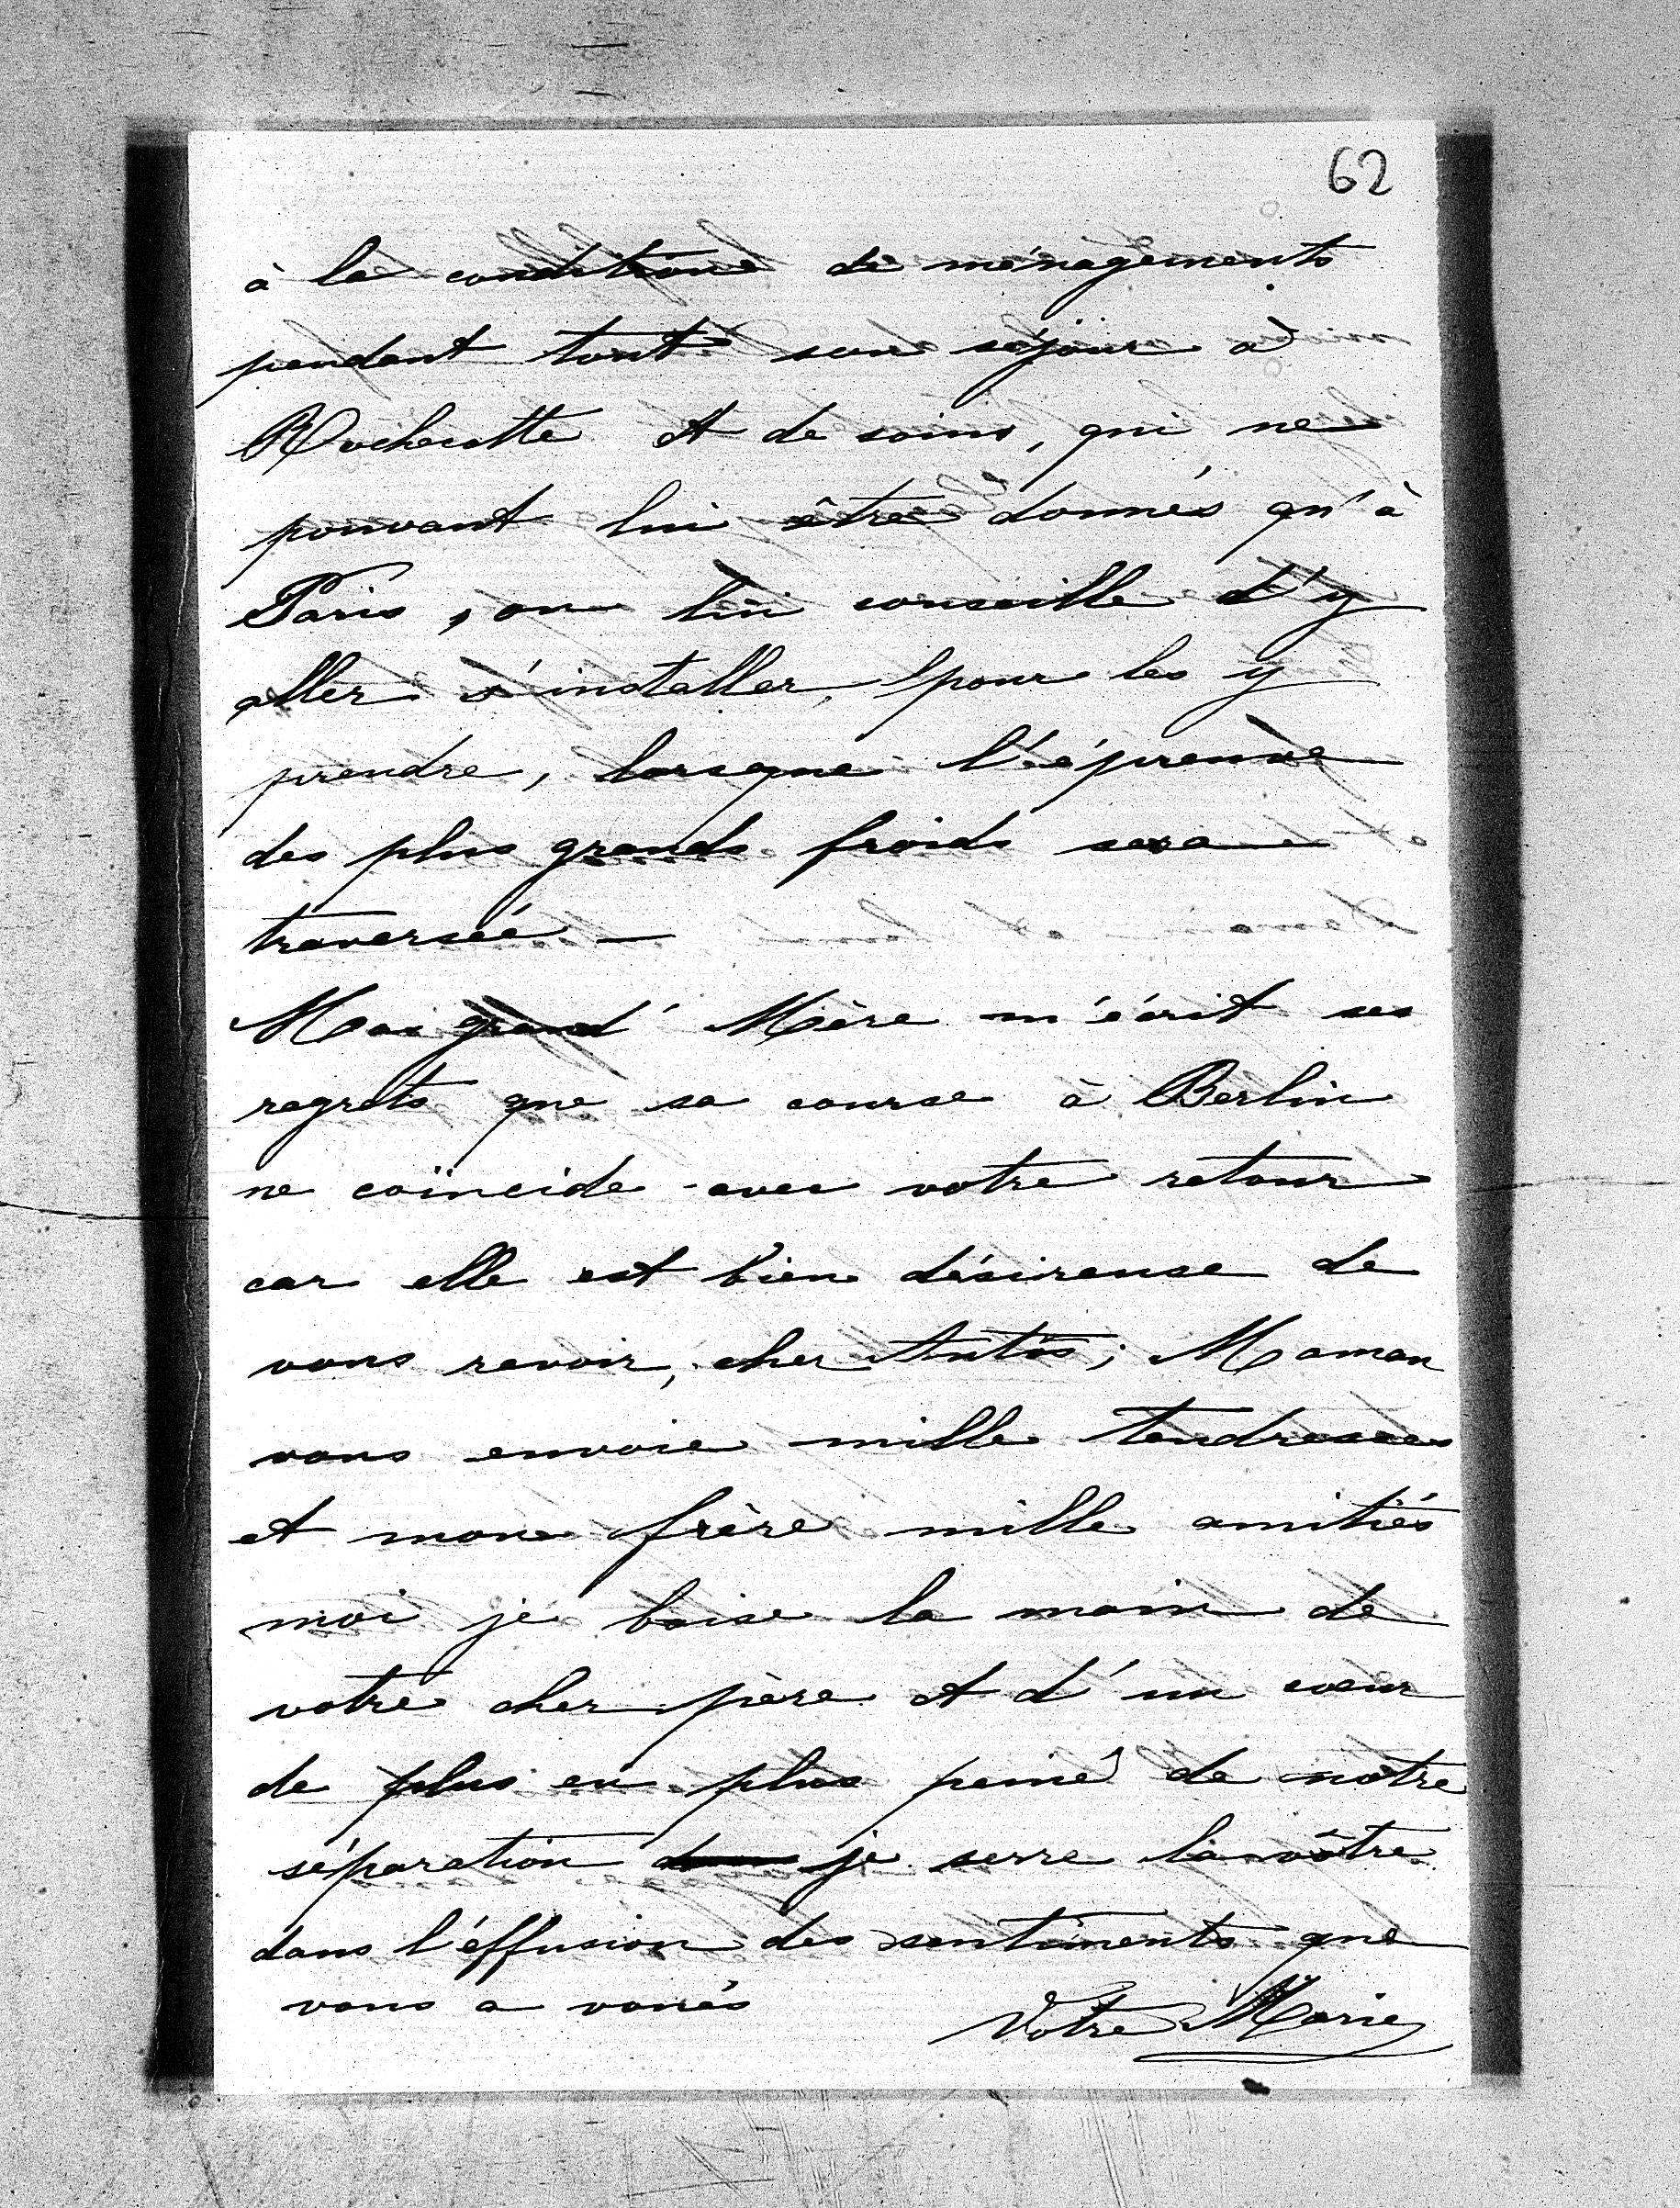 62
à la condition de ménagements
pendant tout son séjour à
Rochecotte et de soins, qui ne
pouvant lui être donnés qu'à
Paris, on lui conseille d'y
aller s'installer, pour les y
prendre, lorsque l'épreuve
des plus grands froids sera
traversée —
Ma grand' Mère m'écrit ses
regrets que sa course à Berlin
ne coïncide avec votre retour
car elle est bien désireuse de
vous revoir, cher Antos; Maman
vous envoie mille tendresses
et mon frère mille amitiés
moi je baise la main de
votre cher père et d'un cœur
de plus en plus peiné de notre
séparation je serre la vôtre
dans l'éffusion des sentiments que
vous a voués
Votre Marie